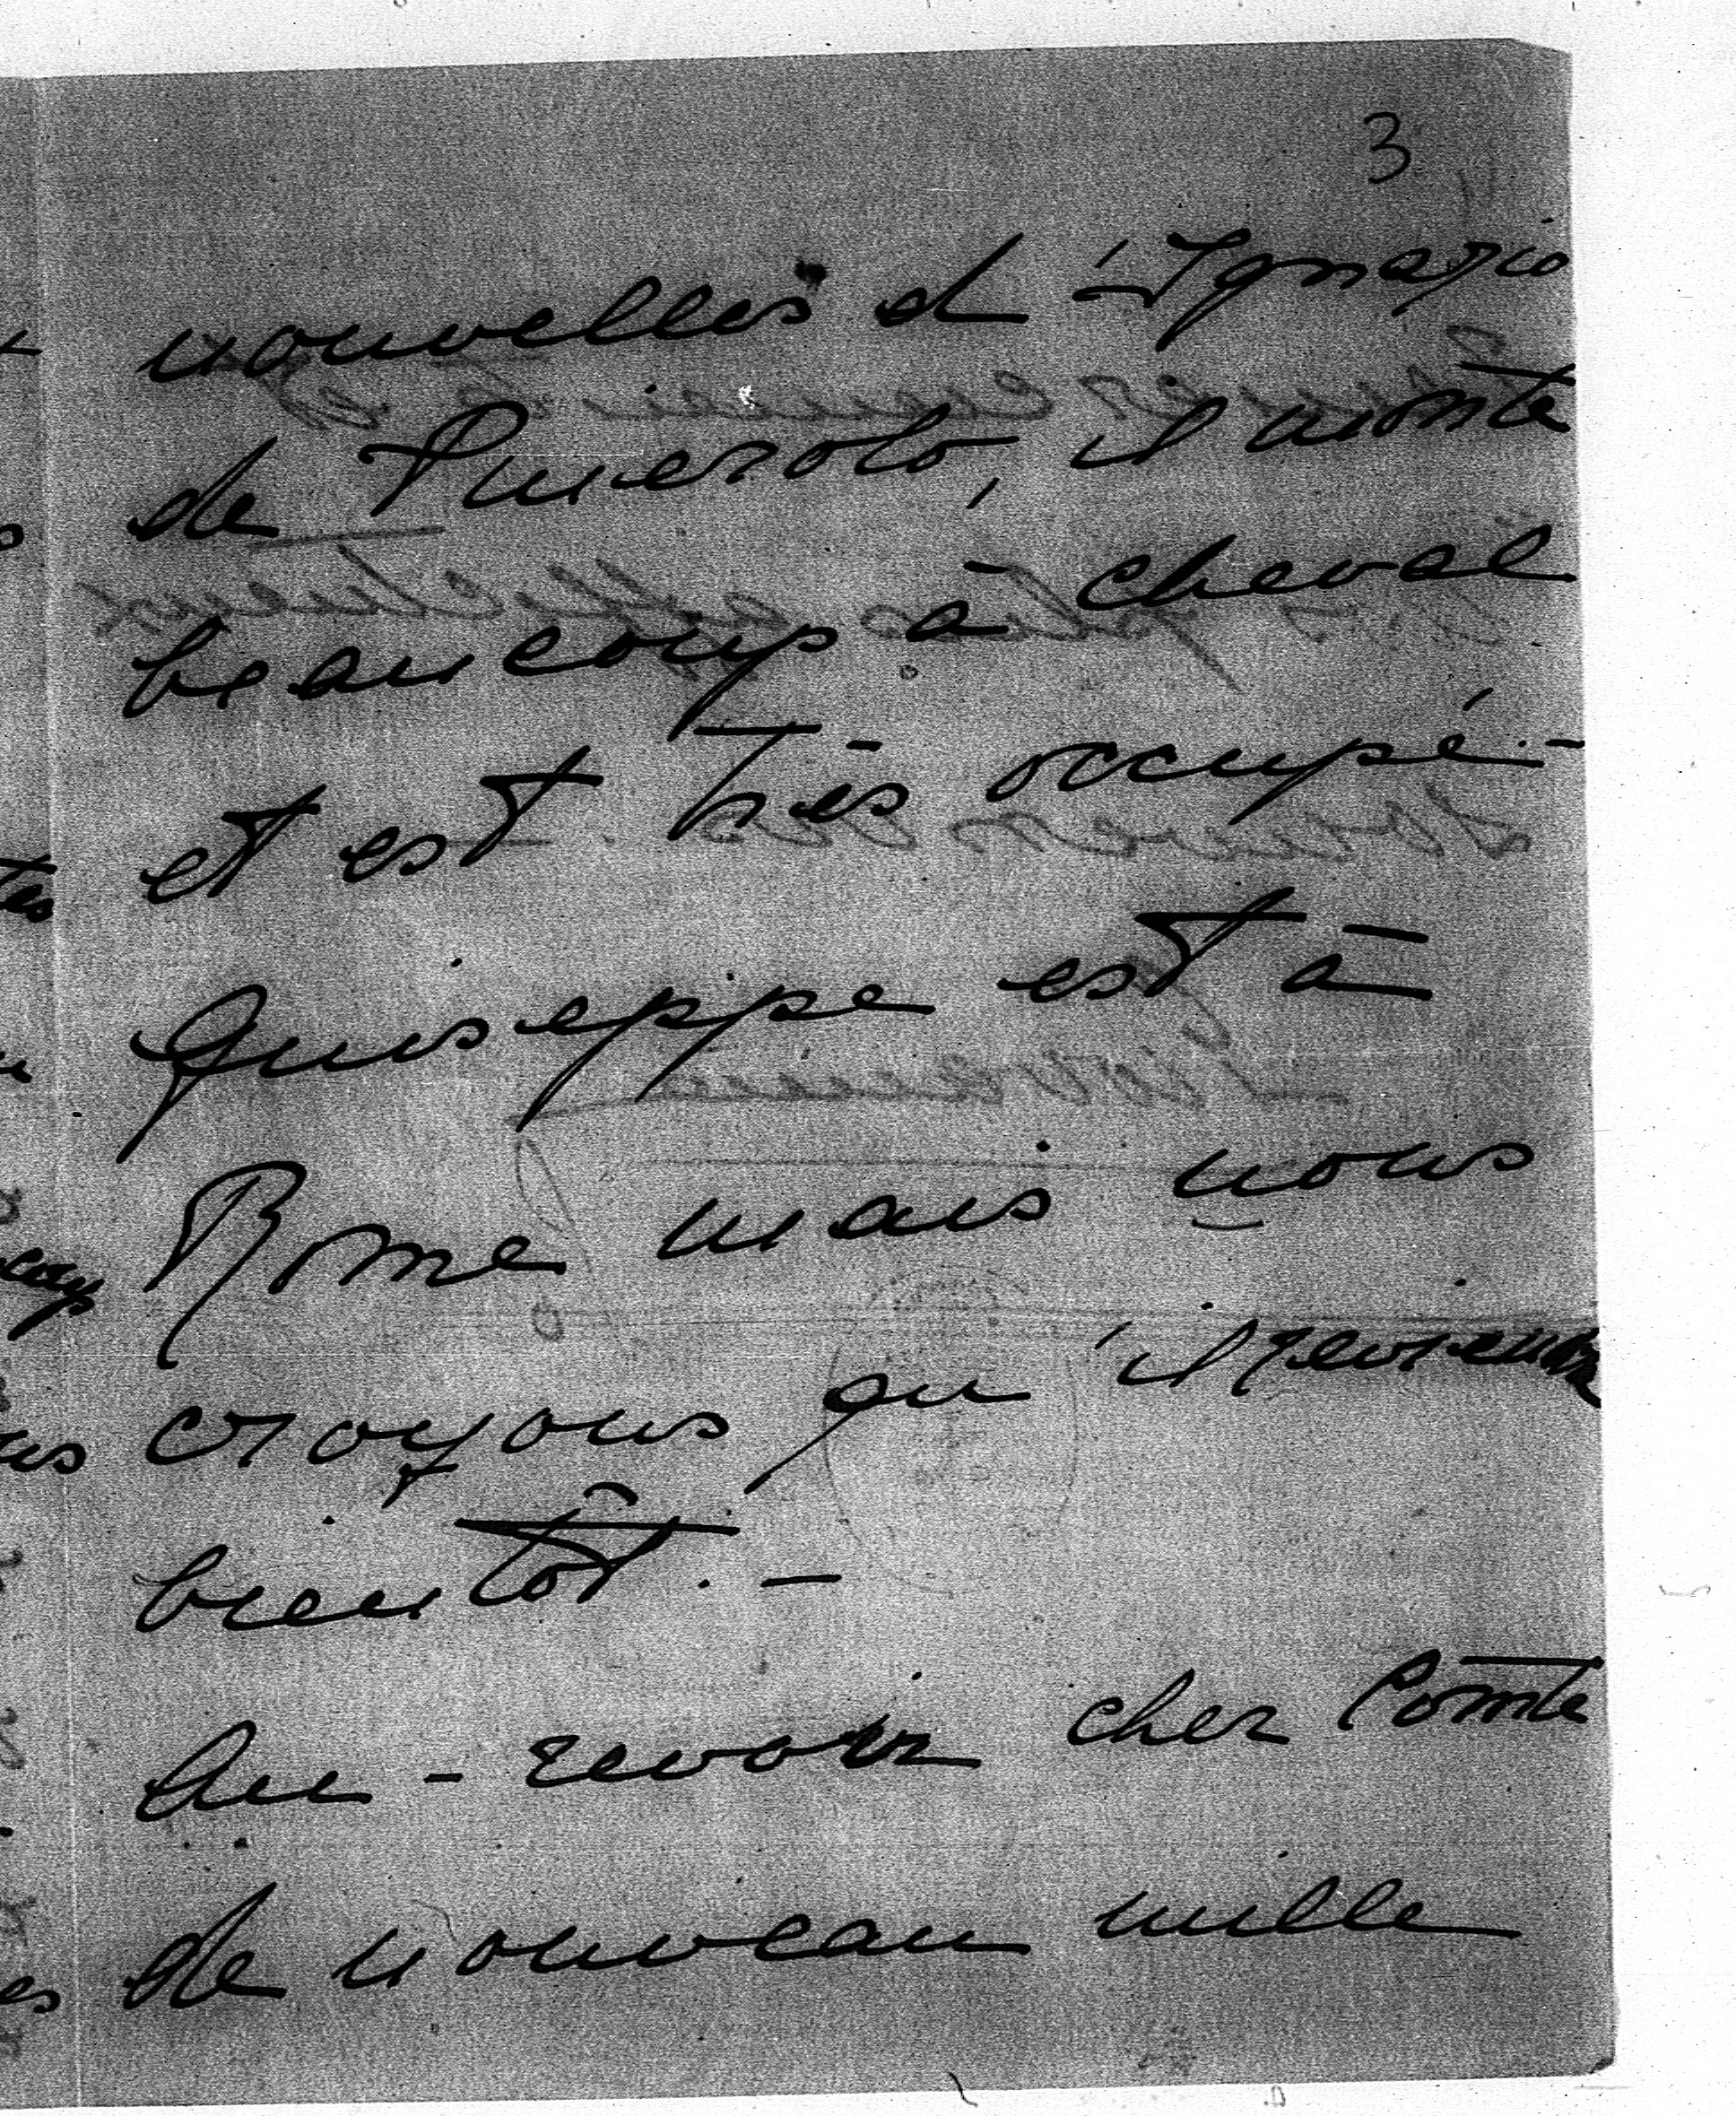 3
nouvelles d'Ignazio
de Pinerolo, il monte
beaucoup à cheval
et est très occupé. -
Giuseppe est à
Rome mais nous
croyons qu'il reviendra
bientôt. -
Au-revoir cher Comte
de nouveau mille